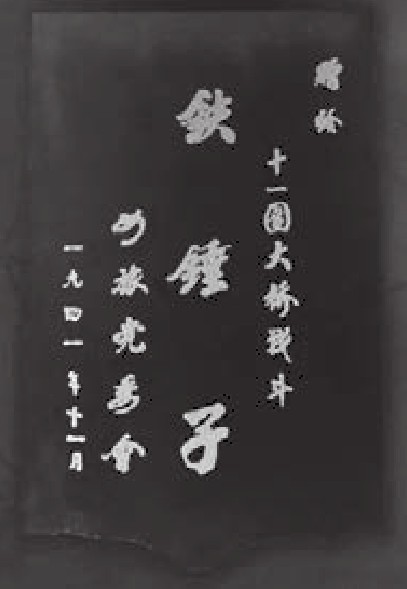 赠给
十一团大桥战斗
鉄錘子
旅党委会
一九四一年十一月